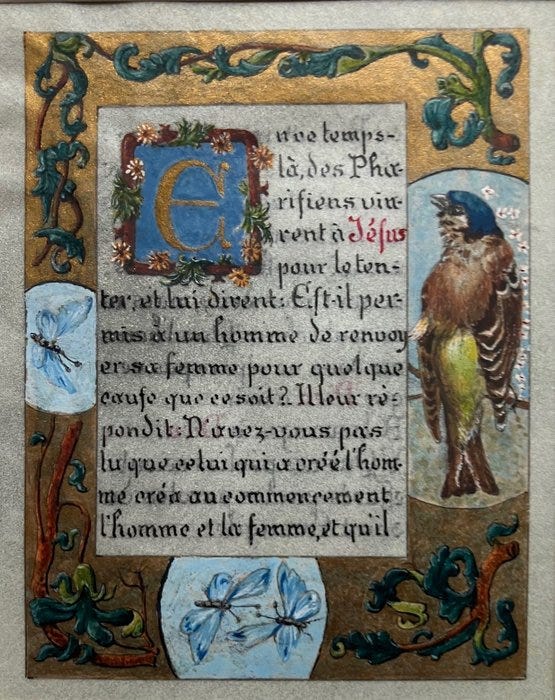 En ce temps-
là, des Pha-
risiens vin-
rent à Jésus
pour le ten-
ter, et lui dirent: Est-il per-
mis à un homme de renvoy
er sa femme pour quelque
cause que ce soit? Il leur ré-
pondit: N'avez-vous pas
lu que celui qui a créé l'hom-
me créa au commencement
l'homme et la femme, et qu'il